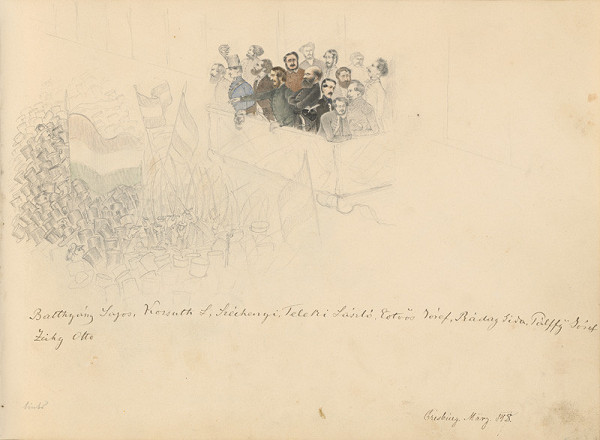 Batthyány Lajos, Kossuth L, Széchenyi, Teleki László, Eötvös József, Ráday Gida, Pálffy József
Zichy Otto
Presburg März 848.